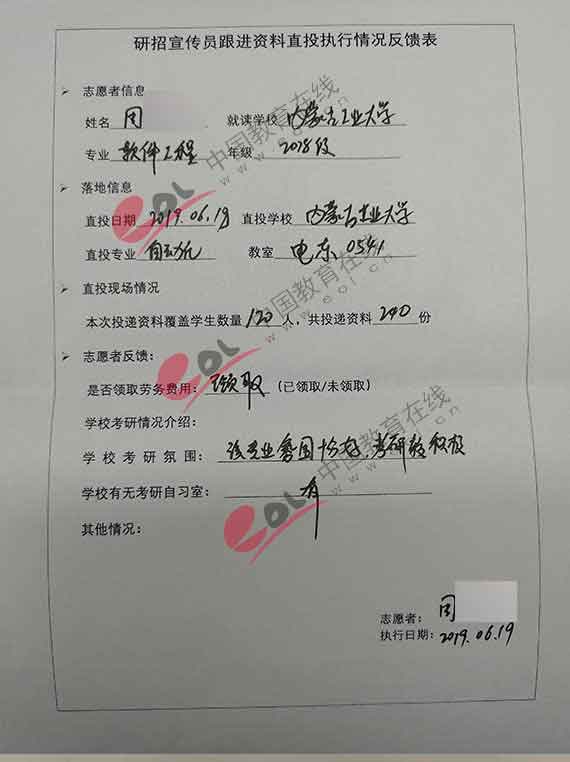 研招宣传员跟进资料直投执行情况反馈表
志愿者信息
姓名 周 就读学校 内蒙古工业大学
专业 软件工程 年级 2018级
落地信息
直投日期 2019.06.19 直投学校 内蒙古工业大学
直投专业 自动化 教室 电东0541
直投现场情况
本次投递资料覆盖学生数量 120 人，共投递资料 240 份
志愿者反馈：
是否领取劳务费用： 领取 （已领取/未领取）
学校考研情况介绍：
学校考研氛围： 该专业氛围 考研较积极
学校有无考研自习室： 有
其他情况：
志愿者： 周
执行日期： 2019.06.19
eol 中国教育在线
www.eol.cn
eol 中国教育在线
www.eol.cn
eol 中国教育在线
www.eol.cn